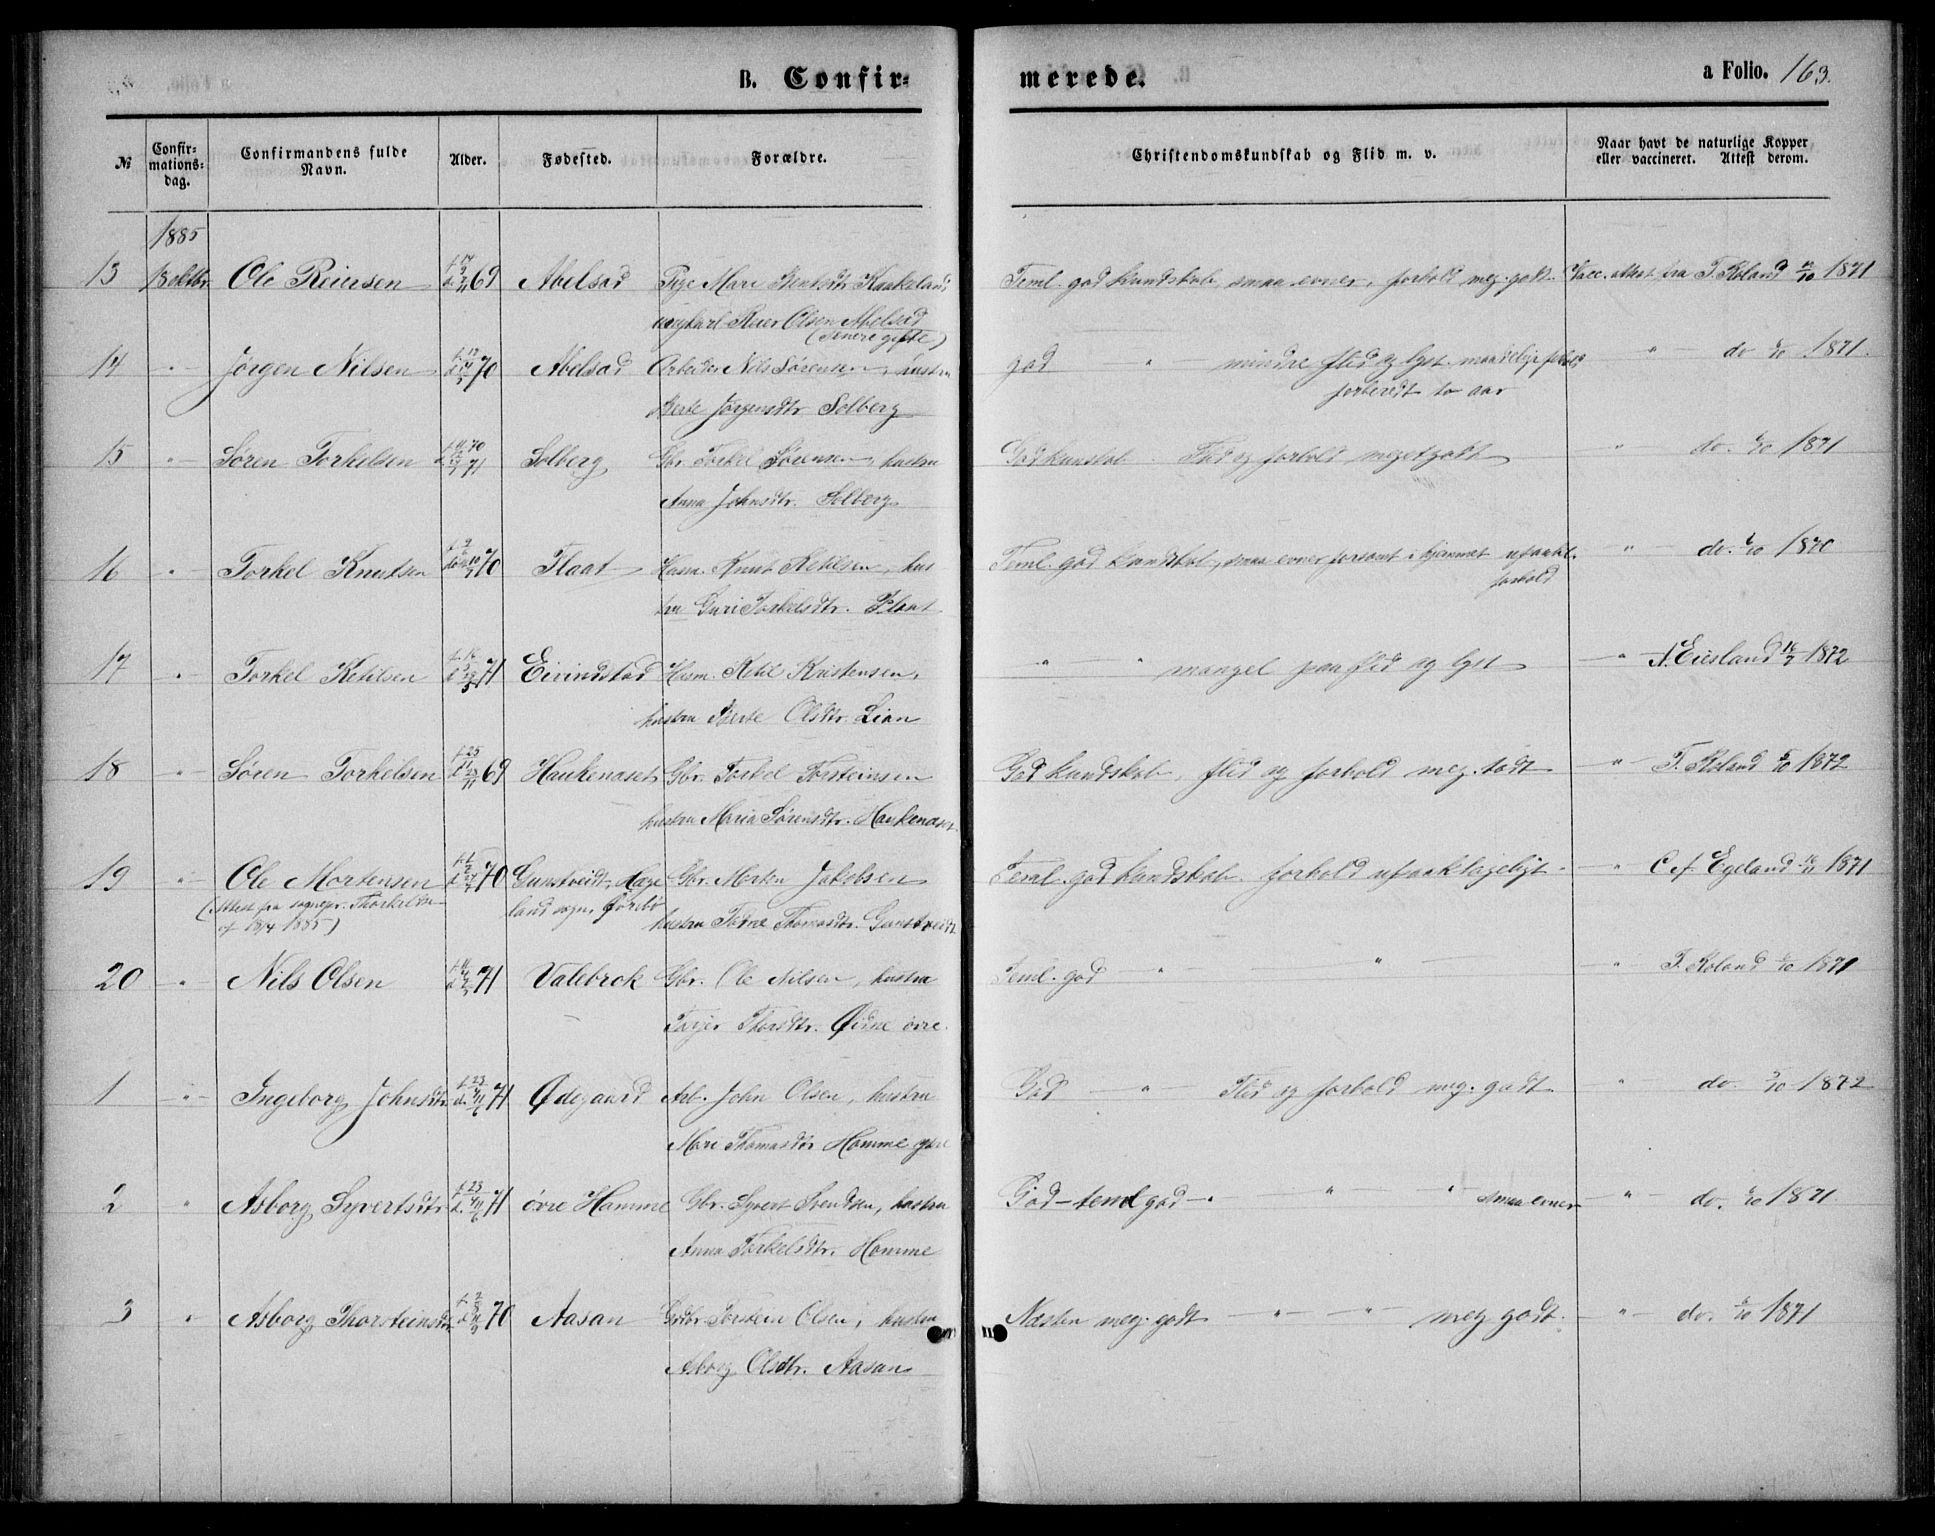 B. Confir=
merede.
a Folio. 163.
№
Confir-
mations-
dag.
Confirmandens fulde
Navn.
Alder.
Fødested.
Forældre.
Christendomskundskab og Flid m. v.
Naar havt de naturlige Kopper
eller vaccineret. Attest derom.
1885
13 18 oktbr. Ole Reiersen 69 Abelsød Pige Mari Haukeland Teml. god kundskab, smaa evner, forhold meg. godt. Vacc. attest fra T. Røland 1871
ungkarl Reier Olsen Abelsød
(senere gifte)
14 " Jørgen Nilsen 70 Abelsød Arbeider Nils Sørensen, hustru god " mindre flid og lyst " do 1871.
Berte Jørgensdtr. Solberg forberedt to aar
15 " Søren Torkelsen 70 71 Solberg Gbr. Torkel Sørensen, hustru God kunskab Flid og forhold meget godt " do. 1871
Anna Johnsdtr. Solberg
16 " Torkel Knutsen 70 Flaat Husm. Knut Ketilsen, hus Teml. god kundskab, smaa evner forsømt i hjemmet upaakl. " do. 1870
tru Guri Torkelsdtr. Flaat forhold
17 " Torkel Ketilsen 71 Eirindstad Husm. Ketil Kristensen, " " mangel paa flid og lyst " Eiesland 1872
hustru Berte Olsdtr. Lian
18 " Søren Torkelsen 69 Haukenæset Gbr. Torkel Torsteinsen God kundskab, flid og forhold meg. godt " T. Røland 1872
hustru Maria Sørensdtr. Haukenæset
19 " Ole Mortensen 70 Gunstveidt, Hæge Gbr. Morten Jakobsen Teml. god kundskab. forhold upaaklageligt " C. A. Egeland 1871
(Attest fra sognepr. Thorkildsen land sogn, Fjørebø hustru Thomasdtr. Gunstveidt
af 18/4 1885)
20 " Nils Olsen 71 Valebrok Gbr. Ole Nilsen, hustru Teml. god " " " T. Røland 1871
Tarjer Thorsdtr. Øidne øvre.
1 " Ingeborg Johnsdtr 71 Ødegaard Arb. John Olsen, hustru God " Flid og forhold meg. godt " do 1872
Mari Thomasdtr Homme
2 " Asborg Syvertsdtr 71 øvre Homme Gbr. Syvert Svendsen, hustru God – teml god – " " " smaa evner " do. 1871.
Anna Torkelsdtr. Homme
3 " Asborg Thorsteinsdtr. 70 Aasan Gdbr. Torstein Olsen, hustru Næsten meg. godt " " meg godt. " do. 1871
Asborg Olsdtr. Aasan